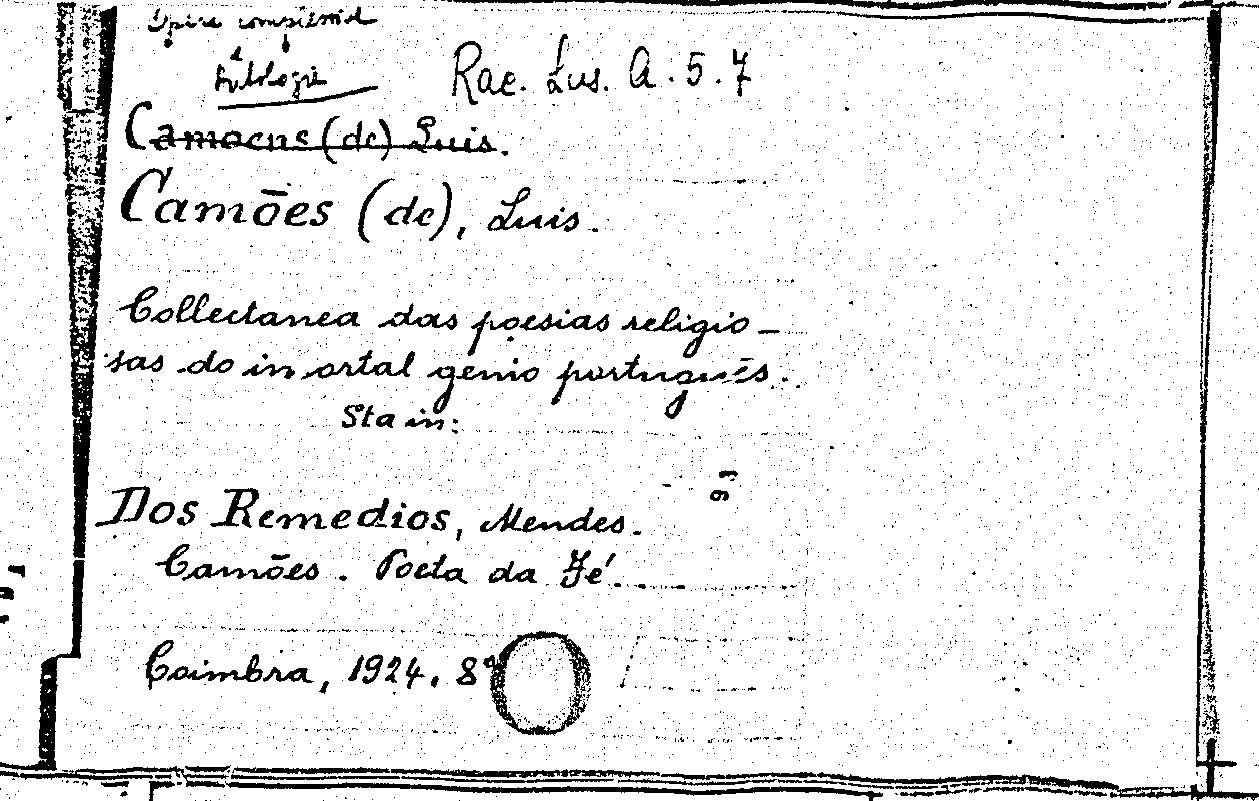 Opere
Antologie
Rac. Lus. A. 5. 7
Camoens (de) Luis.
Camões (de), Luis.
Collectanea das poesias religio-
sas do in ortal genio português.
Sta in:
Dos Remedios, Mendes.
Camões. Poeta da Fé.
Coimbra, 1924. 8°